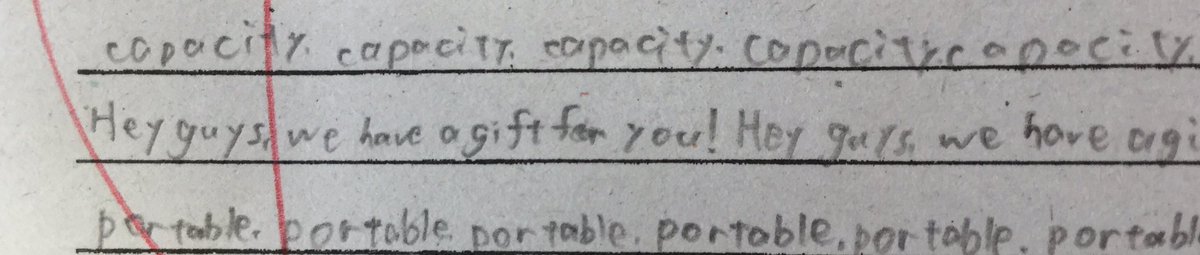 capacity. capacity. capacity. capacity. capacity.
Hey guys, we have a gift for you! Hey guys, we have a gi
portable. portable. portable. portable. portable. portabl